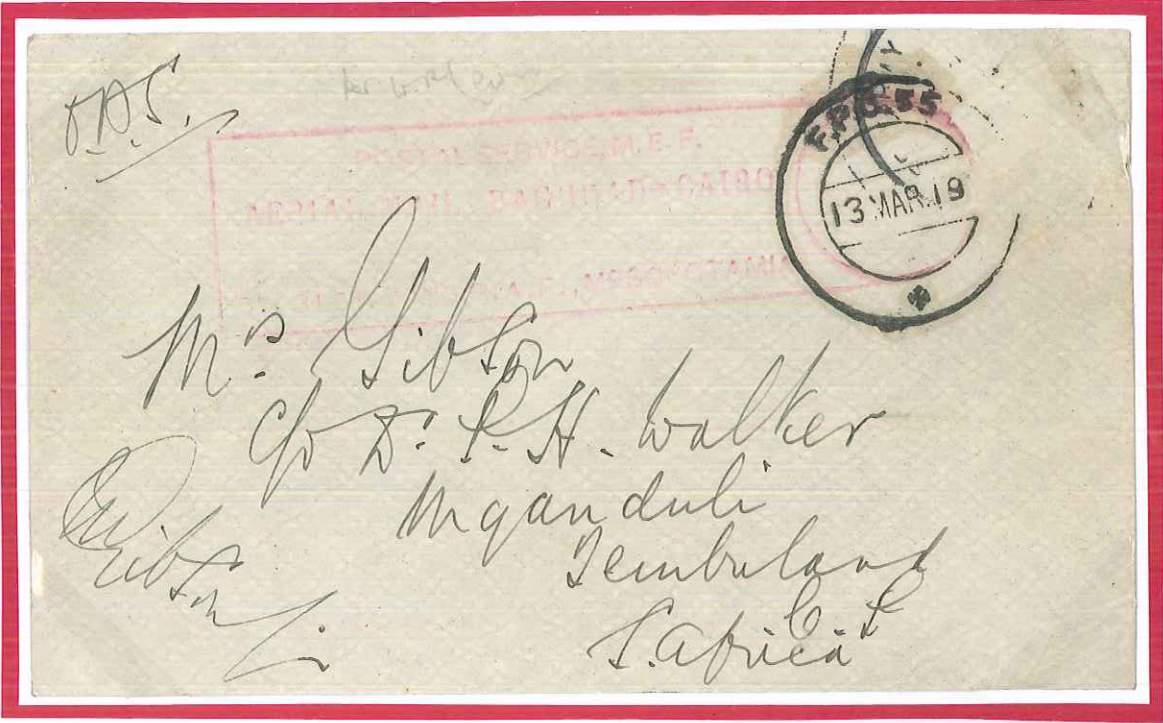 O.A.S.
POSTAL SERVICE, M. E. F.
AERIAL MAIL BAGHDAD - CAIRO
MESOPOTAMIA
F.P.O. 55
13 MAR. 19
Mrs. Gibson
c/o Dr. P. H. Walker
Mqanduli
Tembuland
S. Africa
Gibson